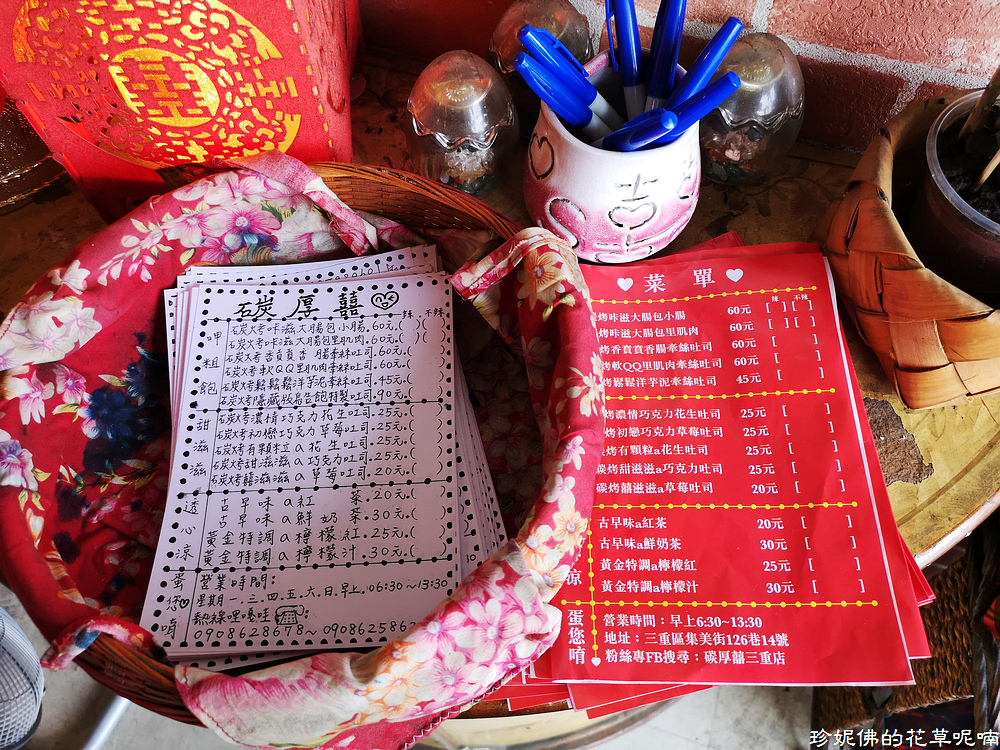 囍
炭 厚 囍
辣 不辣
呷 粗 飽
炭火考咔滋大腸包小腸.60元.( )( )
炭火考咔滋大腸包里肌肉.60元.( )( )
炭火考香貢貢香腸牽絲吐司.60元.( )
炭火考軟QQ里肌肉牽絲吐司.60元.( )
炭火考鬆鬆鬆洋芋泥牽絲吐司.45元.( )
甜 滋 滋
炭火考濃情巧克力花生吐司.25元.( )
炭火考初戀巧克力草莓吐司.25元.( )
炭火考有顆粒a花生吐司.25元.( )
炭火考甜滋滋a巧克力吐司.25元.( )
炭火考囍滋滋a草莓吐司.20元.( )
透 心 涼
古早味a紅 茶.20元.( )
古早味a鮮奶茶.30元.( )
黃金特調a檸檬紅.25元.( )
黃金特調a檸檬汁.30元.( )
蛋 您 唷
營業時間:
星期一.三.四.五.六.日.早上.06:30~13:30
熱線哩嘎哇:
0908628678~
喜
菜單
辣 不辣
烤咔滋大腸包小腸 60元 [ ] [ ]
烤咔滋大腸包里肌肉 60元 [ ] [ ]
烤香貢貢香腸牽絲吐司 60元 [ ]
烤軟QQ里肌肉牽絲吐司 60元 [ ]
烤鬆鬆洋芋泥牽絲吐司 45元 [ ]
烤濃情巧克力花生吐司 25元 [ ]
烤初戀巧克力草莓吐司 25元 [ ]
烤有顆粒a花生吐司 25元 [ ]
碳烤甜滋滋a巧克力吐司 25元 [ ]
碳烤囍滋滋a草莓吐司 20元 [ ]
古早味a紅茶 20元 [ ]
古早味a鮮奶茶 30元 [ ]
黃金特調a檸檬紅 25元 [ ]
黃金特調a檸檬汁 30元 [ ]
涼
蛋您唷
營業時間：早上6:30~13:30
地址：三重區集美街126巷14號
粉絲專FB搜尋：碳厚囍三重店
珍妮佛的花草呢喃